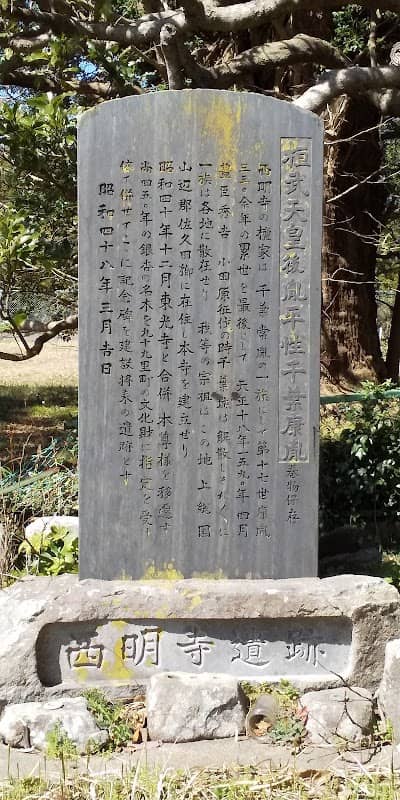 桓武天皇後胤平性千葉康胤 巻物保存
西明寺の檀家は 千葉常胤の一族にして第十七世康胤
三三〇余年の累世を最後にして 天正十八年一五九〇年四月
豊臣秀吉 小田原征伐の時千葉城は解散しほれ
一族は各地に散在せり 我等の宗祖はこの地 上総国
山辺郡佐久田郷に在住し本寺を建立せり
昭和四十年十二月東光寺と合併 本尊様を移遷す
尚四五〇年の銀杏の名木を九十九里町の文化財に指定を受く
依て併せてここに記念碑を建設将来の遺跡とす
昭和四十八年三月吉日
西明寺遺跡